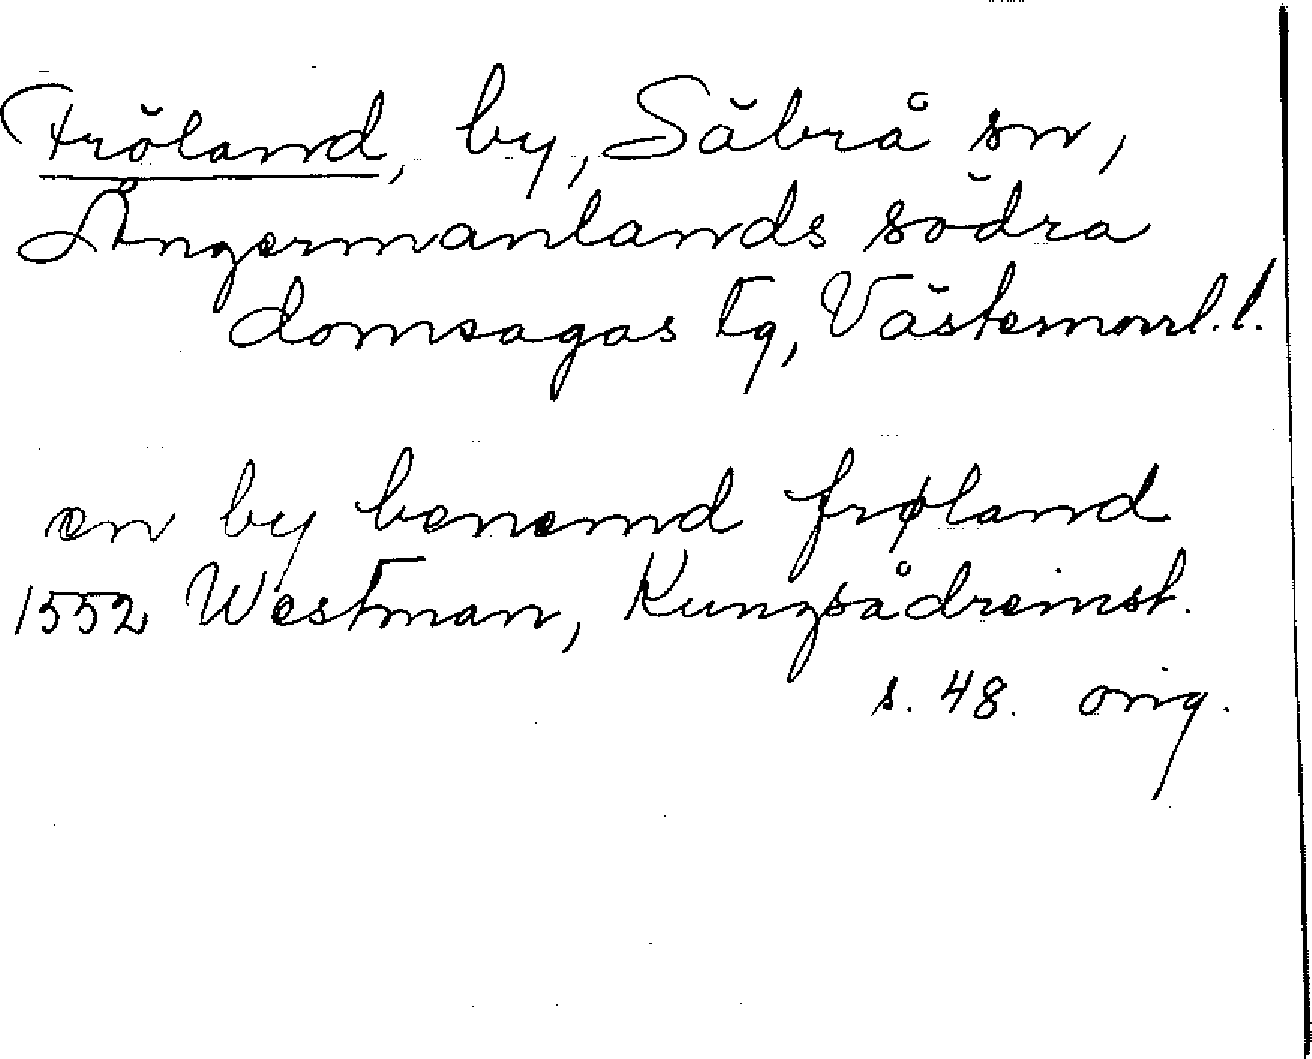 Fröland, by, Säbrå sn,
Ångermanlands södra
domsagas tg, Västernorrl. l.
en by benemd frøland
1552 Westman, Kungsådreinst.
s. 48. orig.